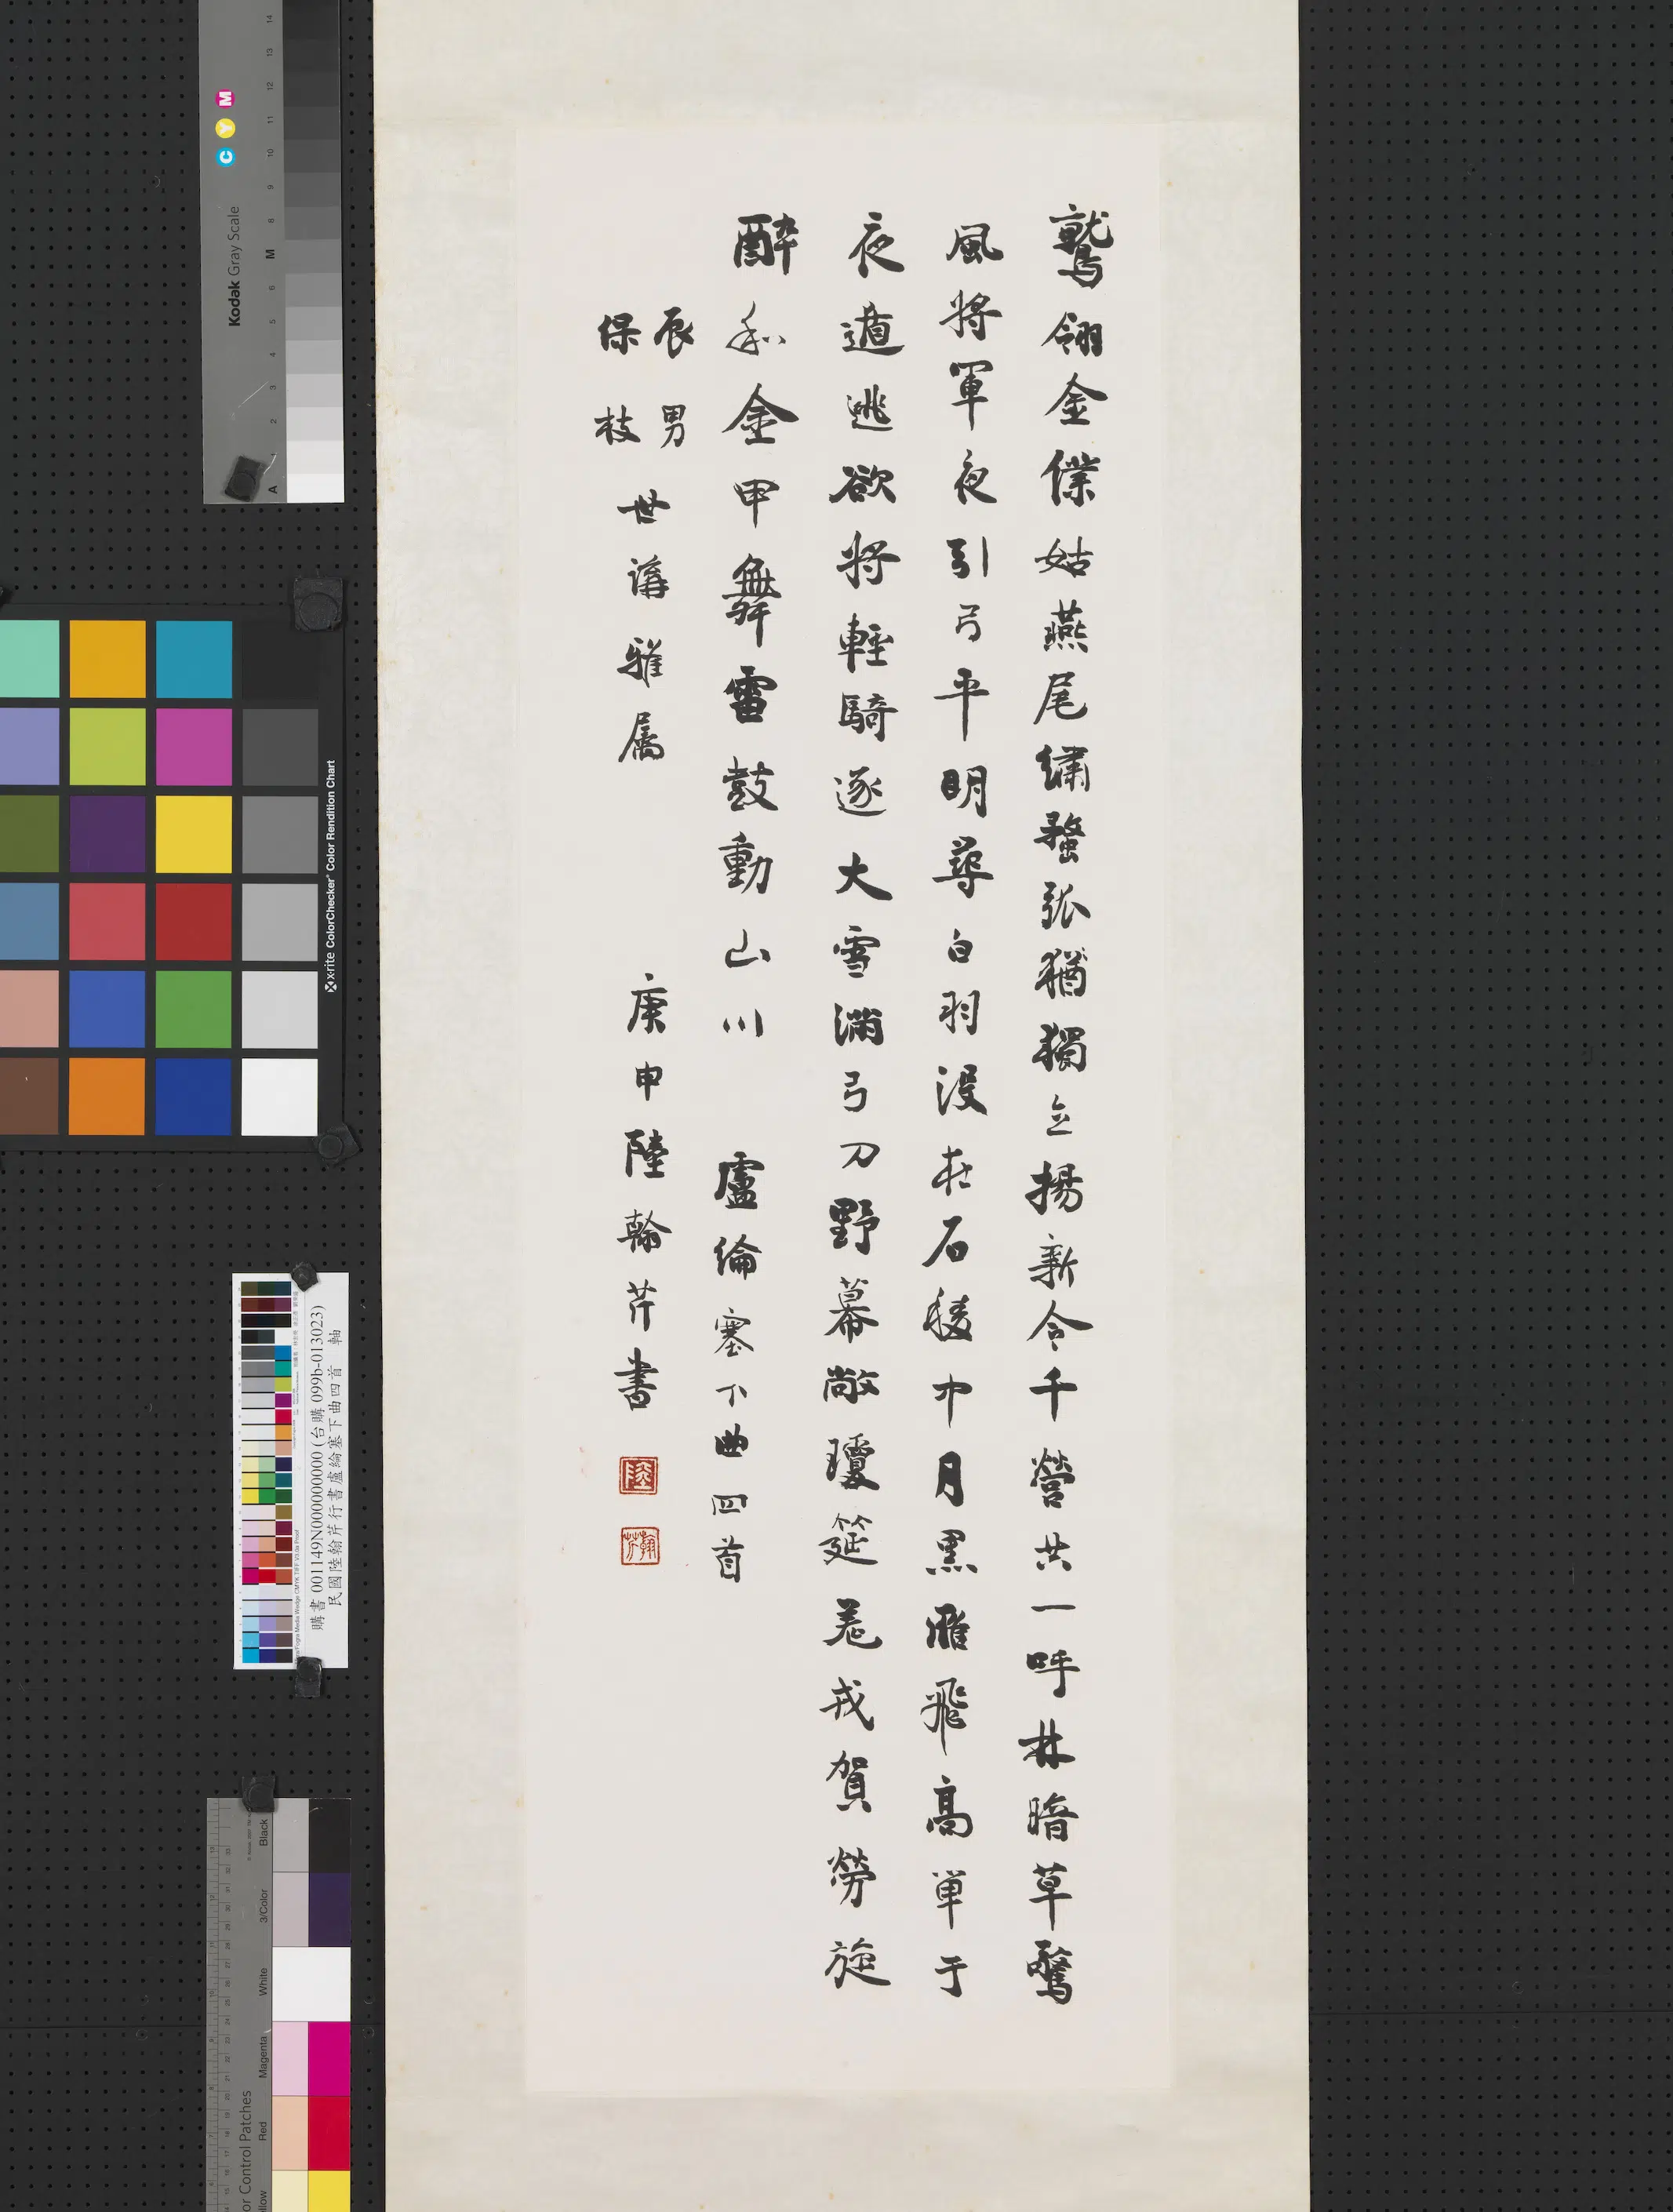 鷲翎金僕姑燕尾繡蝥弧獨立揚新令千營共一呼林暗草驚
風將軍夜引弓平明尋白羽沒在石稜中月黑雁飛高單于
夜遁逃欲將輕騎逐大雪滿弓刀野幕敞瓊筵羌戎賀勞旋
醉和金甲舞雷鼓動山川 盧綸塞下曲四首
辰男
保枝
世講雅属
庚申陸翰芹書
陸
翰芹
Kodak Gray Scale
C Y M
A 1 2 3 4 5 6 M 8 9 10 11 12 13 14
x-rite ColorChecker Color Rendition Chart
購書 001149N000000000 (台購 099b-013023)
民國陸翰芹行書盧綸塞下曲四首 軸
or Control Patches
Black
3/Color
White
Magenta
Red